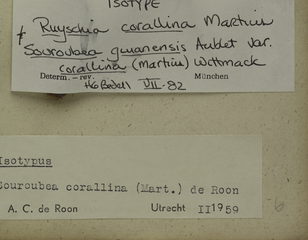 ISOTYPE
Ruyschia corallina Martius
Souroubea guianensis Aublet var.
corallina (Martius) Wittmack
Determ. - rev. München
VII-82
Isotypus
Souroubea corallina (Mart.) de Roon
A. C. de Roon Utrecht II 1959